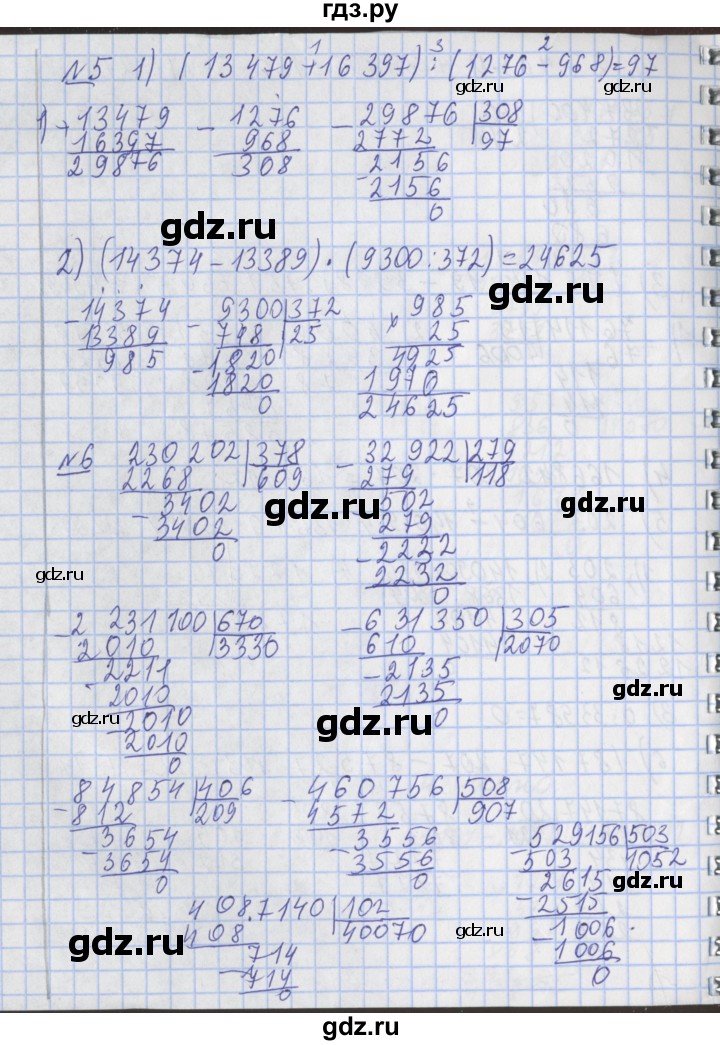 гдз.ру
№5 1) (13 479 + 16 397) : (1276 - 968) = 97
1 3 2
1) + 13479
16397
29876
- 1276
968
308
- 29876 | 308
2772 | 97
- 2156
2156
0
gdz.ru
2) (14374 - 13389) · (9300 : 372) = 24625
gdz.ru
- 14374
13389
985
- 9300 | 372
748 | 25
- 1820
1820
0
× 985
25
4925
1970
24625
gdz.ru
№6 230 202 | 378
2268 | 609
- 3402
3402
0
- 32 922 | 279
279 | 118
- 502
279
- 2232
2232
0
gdz.ru
gdz.ru
gdz.ru
- 2 231 100 | 670
2010 | 3330
- 2211
2010
- 2010
2010
0
- 631 350 | 305
610 | 2070
- 2135
2135
0
gdz.ru
gdz.ru
gdz.ru
- 84 854 | 406
812 | 209
- 3654
3654
0
- 460 756 | 508
4572 | 907
- 3556
3556
0
529156 | 503
- 503 | 1052
2615
- 2515
- 1006
1006
0
gdz.ru
4087140 | 102
408 | 40070
- 714
714
0
gdz.ru
gdz.ru
gdz.ru